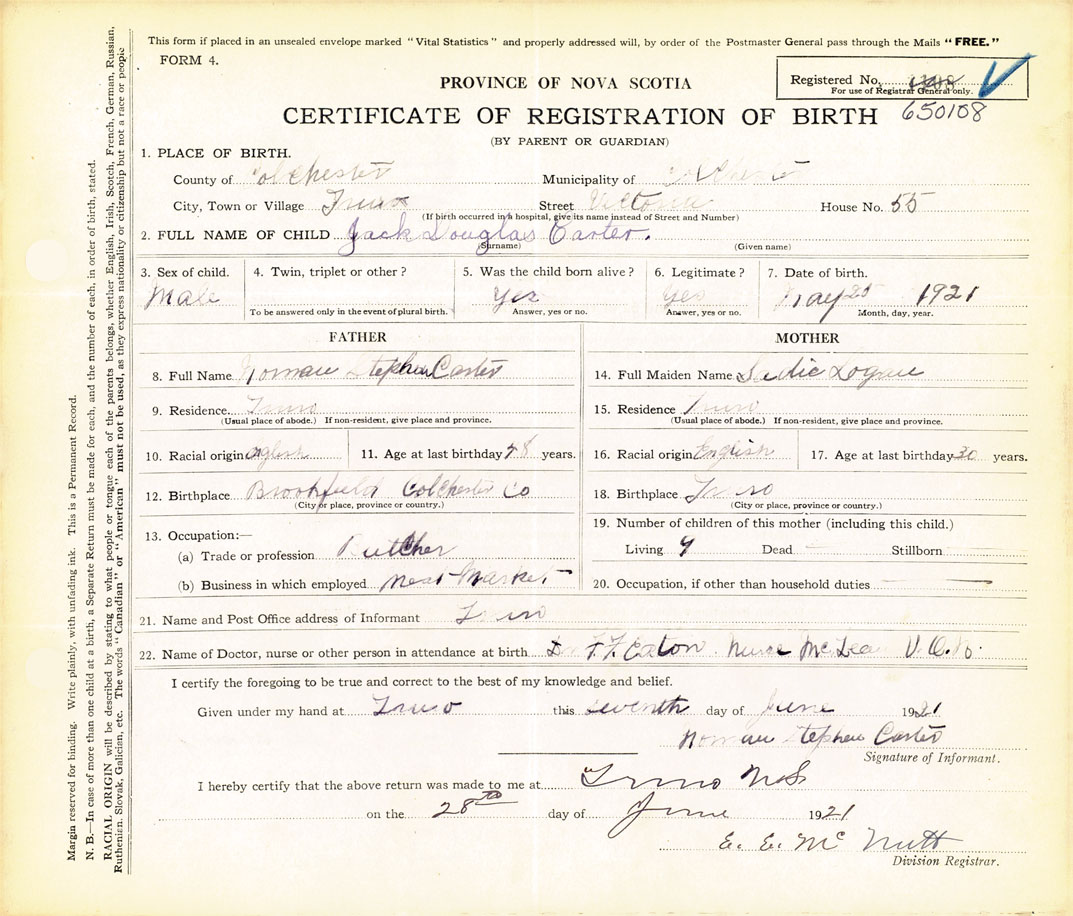 This form if placed in an unsealed envelope marked "Vital Statistics" and properly addressed will, by order of the Postmaster General pass through the Mails "FREE."
FORM 4.
Registered No.
For use of Registrar General only.
650108
PROVINCE OF NOVA SCOTIA
CERTIFICATE OF REGISTRATION OF BIRTH
(BY PARENT OR GUARDIAN)
1. PLACE OF BIRTH.
County of Colchester Municipality of Colchester
City, Town or Village Truro Street Victoria House No. 55
(If birth occurred in a hospital, give its name instead of Street and Number)
2. FULL NAME OF CHILD Jack Douglas Carter.
(Surname) (Given name)
3. Sex of child. 4. Twin, triplet or other? 5. Was the child born alive? 6. Legitimate? 7. Date of birth.
Male Yes Yes May 25 1921
To be answered only in the event of plural birth. Answer, yes or no. Answer, yes or no. Month, day, year.
FATHER
8. Full Name Norman Stephen Carter
9. Residence Truro
(Usual place of abode.) If non-resident, give place and province.
10. Racial origin English 11. Age at last birthday 48 years.
12. Birthplace Brookfield Colchester Co
(City or place, province or country.)
13. Occupation:—
(a) Trade or profession Butcher
(b) Business in which employed Meat Market
MOTHER
14. Full Maiden Name Sadie Logan
15. Residence Truro
(Usual place of abode.) If non-resident, give place and province.
16. Racial origin English 17. Age at last birthday 30 years.
18. Birthplace Truro
(City or place, province or country.)
19. Number of children of this mother (including this child.)
Living Dead Stillborn
20. Occupation, if other than household duties
21. Name and Post Office address of Informant Truro
22. Name of Doctor, nurse or other person in attendance at birth Dr F. F. Eaton Nurse McLean V. O. N.
I certify the foregoing to be true and correct to the best of my knowledge and belief.
Given under my hand at Truro this seventh day of June 1921
Norman Stephen Carter
Signature of Informant.
I hereby certify that the above return was made to me at Truro N.S
on the 28th day of June 1921
E. E. McNutt
Division Registrar.
Margin reserved for binding. Write plainly, with unfading ink. This is a Permanent Record.
N. B.—In case of more than one child at a birth, a Separate Return must be made for each, and the number of each, in order of birth, stated.
RACIAL ORIGIN will be described by stating to what people or tongue each of the parents belongs, whether English, Irish, Scotch, French, German, Russian,
Ruthenian, Slovak, Galician, etc. The words "Canadian" or "American" must not be used, as they express nationality or citizenship but not a race or people